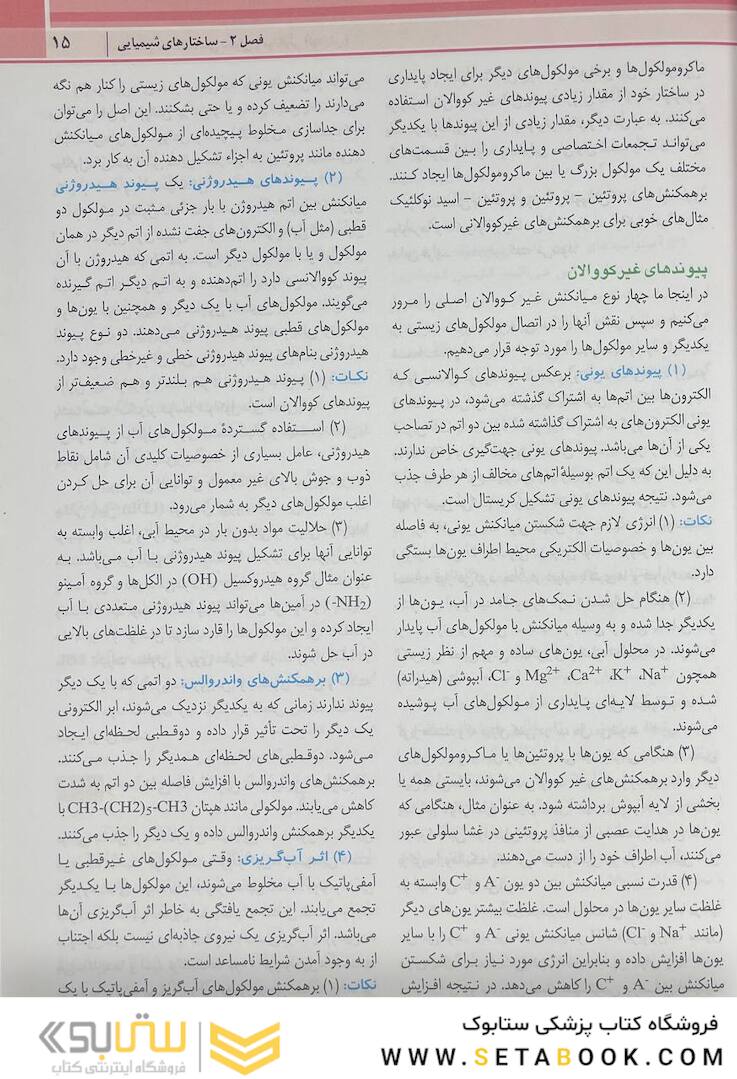 فصل ۲ - ساختارهای شیمیایی | ۱۵
ماکرومولکول‌ها و برخی مولکول‌های دیگر برای ایجاد پایداری
در ساختار خود از مقدار زیادی پیوندهای غیر کووالان استفاده
می‌کنند. به عبارت دیگر، مقدار زیادی از این پیوندها با یکدیگر
می‌تواند تجمعات اختصاصی و پایداری را بین قسمت‌های
مختلف یک مولکول بزرگ یا بین ماکرومولکول‌ها ایجاد کنند.
برهمکنش‌های پروتئین - پروتئین و پروتئین - اسید نوکلئیک
مثال‌های خوبی برای برهمکنش‌های غیرکووالانی است.
پیوندهای غیرکووالان
در اینجا ما چهار نوع میانکنش غیر کووالان اصلی را مرور
می‌کنیم و سپس نقش آنها را در اتصال مولکول‌های زیستی به
یکدیگر و سایر مولکول‌ها را مورد توجه قرار می‌دهیم.
(۱) پیوندهای یونی: برعکس پیوندهای کوالانسی که
الکترون‌ها بین اتم‌ها به اشتراک گذشته می‌شود، در پیوندهای
یونی الکترون‌های به اشتراک گذاشته شده بین دو اتم در تصاحب
یکی از آن‌ها می‌باشد. پیوندهای یونی جهت‌گیری خاص ندارند.
به دلیل این که یک اتم بوسیلهٔ اتم‌های مخالف از هر طرف جذب
می‌شود. نتیجه پیوندهای یونی تشکیل کریستال است.
نکات: (۱) انرژی لازم جهت شکستن میانکنش یونی، به فاصله
بین یون‌ها و خصوصیات الکتریکی محیط اطراف یون‌ها بستگی
دارد.
(۲) هنگام حل شدن نمک‌های جامد در آب، یون‌ها از
یکدیگر جدا شده و به وسیله میانکنش با مولکول‌های آب پایدار
می‌شوند. در محلول آبی، یون‌های ساده و مهم از نظر زیستی
همچون Na⁺، K⁺، Ca²⁺، Mg²⁺ و Cl⁻، آبپوشی (هیدراته)
شده و توسط لایه‌ای پایداری از مولکول‌های آب پوشیده
می‌شوند.
(۳) هنگامی که یون‌ها با پروتئین‌ها یا ماکرومولکول‌های
دیگر وارد برهمکنش‌های غیر کووالان می‌شوند، بایستی همه یا
بخشی از لایه آبپوش برداشته شود. به عنوان مثال، هنگامی که
یون‌ها در هدایت عصبی از منافذ پروتئینی در غشا سلولی عبور
می‌کنند، آب اطراف خود را از دست می‌دهند.
(۴) قدرت نسبی میانکنش بین دو یون A⁻ و C⁺ وابسته به
غلظت سایر یون‌ها در محلول است. غلظت بیشتر یون‌های دیگر
(مانند Na⁺ و Cl⁻) شانس میانکنش یونی A⁻ و C⁺ را با سایر
یون‌ها افزایش داده و بنابراین انرژی مورد نیاز برای شکستن
میانکنش بین A⁻ و C⁺ را کاهش می‌دهد. در نتیجه افزایش
می‌تواند میانکنش یونی که مولکول‌های زیستی را کنار هم نگه
می‌دارند را تضعیف کرده و یا حتی بشکنند. این اصل را می‌توان
برای جداسازی مخلوط پیچیده‌ای از مولکول‌های میانکنش
دهنده مانند پروتئین به اجزاء تشکیل دهنده آن به کار برد.
(۲) پیوندهای هیدروژنی: یک پیوند هیدروژنی
میانکنش بین اتم هیدروژن با بار جزئی مثبت در مولکول دو
قطبی (مثل آب) و الکترون‌های جفت نشده از اتم دیگر در همان
مولکول و یا با مولکول دیگر است. به اتمی که هیدروژن با آن
پیوند کووالانسی دارد را اتم‌دهنده و به اتم دیگر اتم گیرنده
می‌گویند. مولکول‌های آب با یک دیگر و همچنین با یون‌ها و
مولکول‌های قطبی پیوند هیدروژنی می‌دهند. دو نوع پیوند
هیدروژنی بنام‌های پیوند هیدروژنی خطی و غیرخطی وجود دارد.
نکات: (۱) پیوند هیدروژنی هم بلندتر و هم ضعیف‌تر از
پیوندهای کووالان است.
(۲) استفاده گستردهٔ مولکول‌های آب از پیوندهای
هیدروژنی، عامل بسیاری از خصوصیات کلیدی آن شامل نقاط
ذوب و جوش بالای غیر معمول و توانایی آن برای حل کردن
اغلب مولکول‌های دیگر به شمار می‌رود.
(۳) حلالیت مواد بدون بار در محیط آبی، اغلب وابسته به
توانایی آنها برای تشکیل پیوند هیدروژنی با آب می‌باشد. به
عنوان مثال گروه هیدروکسیل (OH) در الکل‌ها و گروه آمینو
(-NH₂) در آمین‌ها می‌تواند پیوند هیدروژنی متعددی با آب
ایجاد کرده و این مولکول‌ها را قارد سازد تا در غلظت‌های بالایی
در آب حل شوند.
(۳) برهمکنش‌های واندروالس: دو اتمی که با یک دیگر
پیوند ندارند زمانی که به یکدیگر نزدیک می‌شوند، ابر الکترونی
یک دیگر را تحت تأثیر قرار داده و دوقطبی لحظه‌ای ایجاد
می‌شود. دوقطبی‌های لحظه‌ای همدیگر را جذب می‌کنند.
برهمکنش‌های واندروالس با افزایش فاصله بین دو اتم به شدت
کاهش می‌یابند. مولکولی مانند هپتان CH3-(CH2)₅-CH3 با
یکدیگر برهمکنش واندروالس داده و یک دیگر را جذب می‌کنند.
(۴) اثر آب‌گریزی: وقتی مولکول‌های غیرقطبی یا
آمفی‌پاتیک با آب مخلوط می‌شوند، این مولکول‌ها با یکدیگر
تجمع می‌یابند. این تجمع یافتگی به خاطر اثر آب‌گریزی آن‌ها
می‌باشد. اثر آب‌گریزی یک نیروی جاذبه‌ای نیست بلکه اجتناب
از به وجود آمدن شرایط نامساعد است.
نکات: (۱) برهمکنش مولکول‌های آب‌گریز و آمفی‌پاتیک با یک
فروشگاه کتاب پزشکی ستابوک
WWW.SETABOOK.COM
ستابوک
فروشگاه اینترنتی کتاب